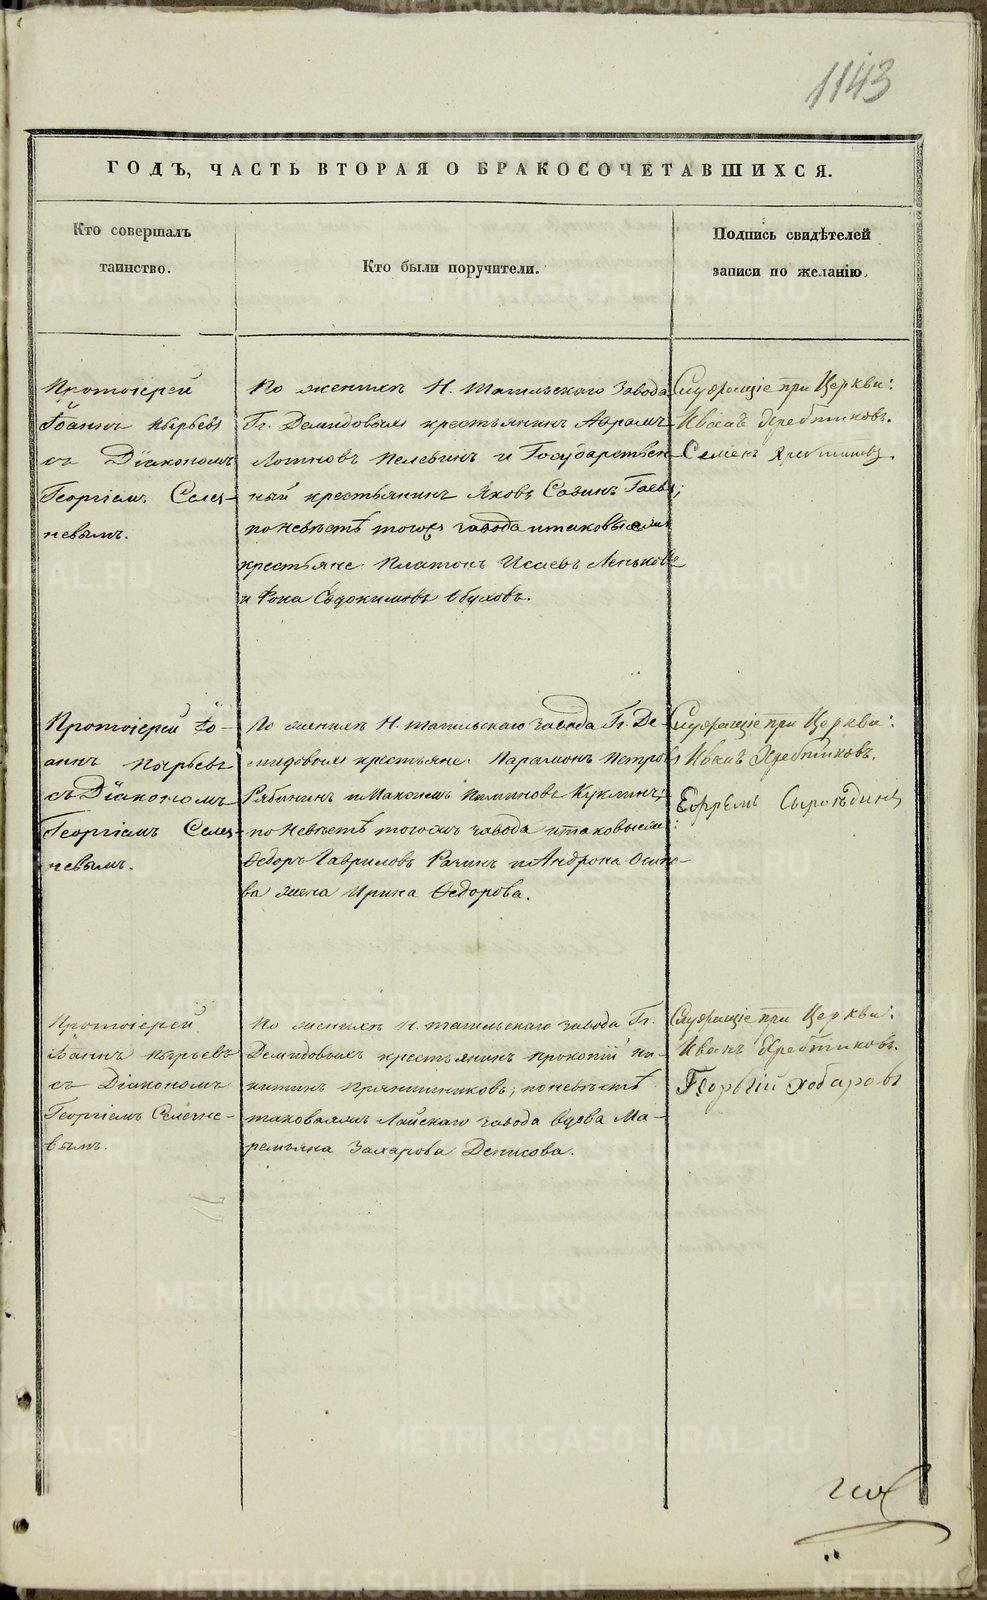 1143
ГОДЪ, ЧАСТЬ ВТОРАЯ О БРАКОСОЧЕТАВШИХСЯ.
Кто совершалъ
таинство.
Кто были поручители.
Подпись свидѣтелей
записи по желанію.
Протоіерей
Іоаннъ Пырьевъ
съ Діакономъ
Георгіемъ Селез-
невымъ.
По женихѣ Н. Тагильскаго завода
Гг. Демидовыхъ крестьянинъ Аврамъ
Логиновъ Пелевинъ и Государствен-
ный крестьянинъ Яковъ Савинъ Гаевъ;
по невѣстѣ тогожъ завода и таковыежъ
крестьяне Платонъ Исаевъ Леньковъ
и Фока Евдокимовъ Обуховъ.
Служащіе при Церкви:
Иванъ Хребтиковъ.
Семенъ
Протоіерей Іо-
аннъ Пырьевъ
съ Діакономъ
Георгіемъ Селез-
невымъ.
По женихѣ Н. Тагильскаго завода Гг. Де-
мидовыхъ крестьяне Парамонъ Петровъ
Рябининъ и Максимъ Куклинъ;
по невѣстѣ тогожъ завода и таковыежъ:
Ѳедоръ Гавриловъ Рагинъ и Андрона Осипо-
ва жена Ирина Ѳедорова.
Служащіе при Церкви:
Иванъ Хребтиковъ.
Ефремъ Сыроѣдинъ
Протоіерей
Іоаннъ Пырьевъ
съ Діакономъ
Георгіемъ Селезне-
вымъ.
По женихѣ Н. Тагильскаго завода Гг.
Демидовыхъ крестьянинъ Прокопій Ни-
китинъ Прянишниковъ; по невѣстѣ
таковаяжъ Лайскаго завода вдова Ма-
ремьяна Захарова Денисова.
Служащіе при Церкви:
Иванъ Хребтиковъ.
Георгій Хобаровъ
METRIKI.GASO-URAL.RU